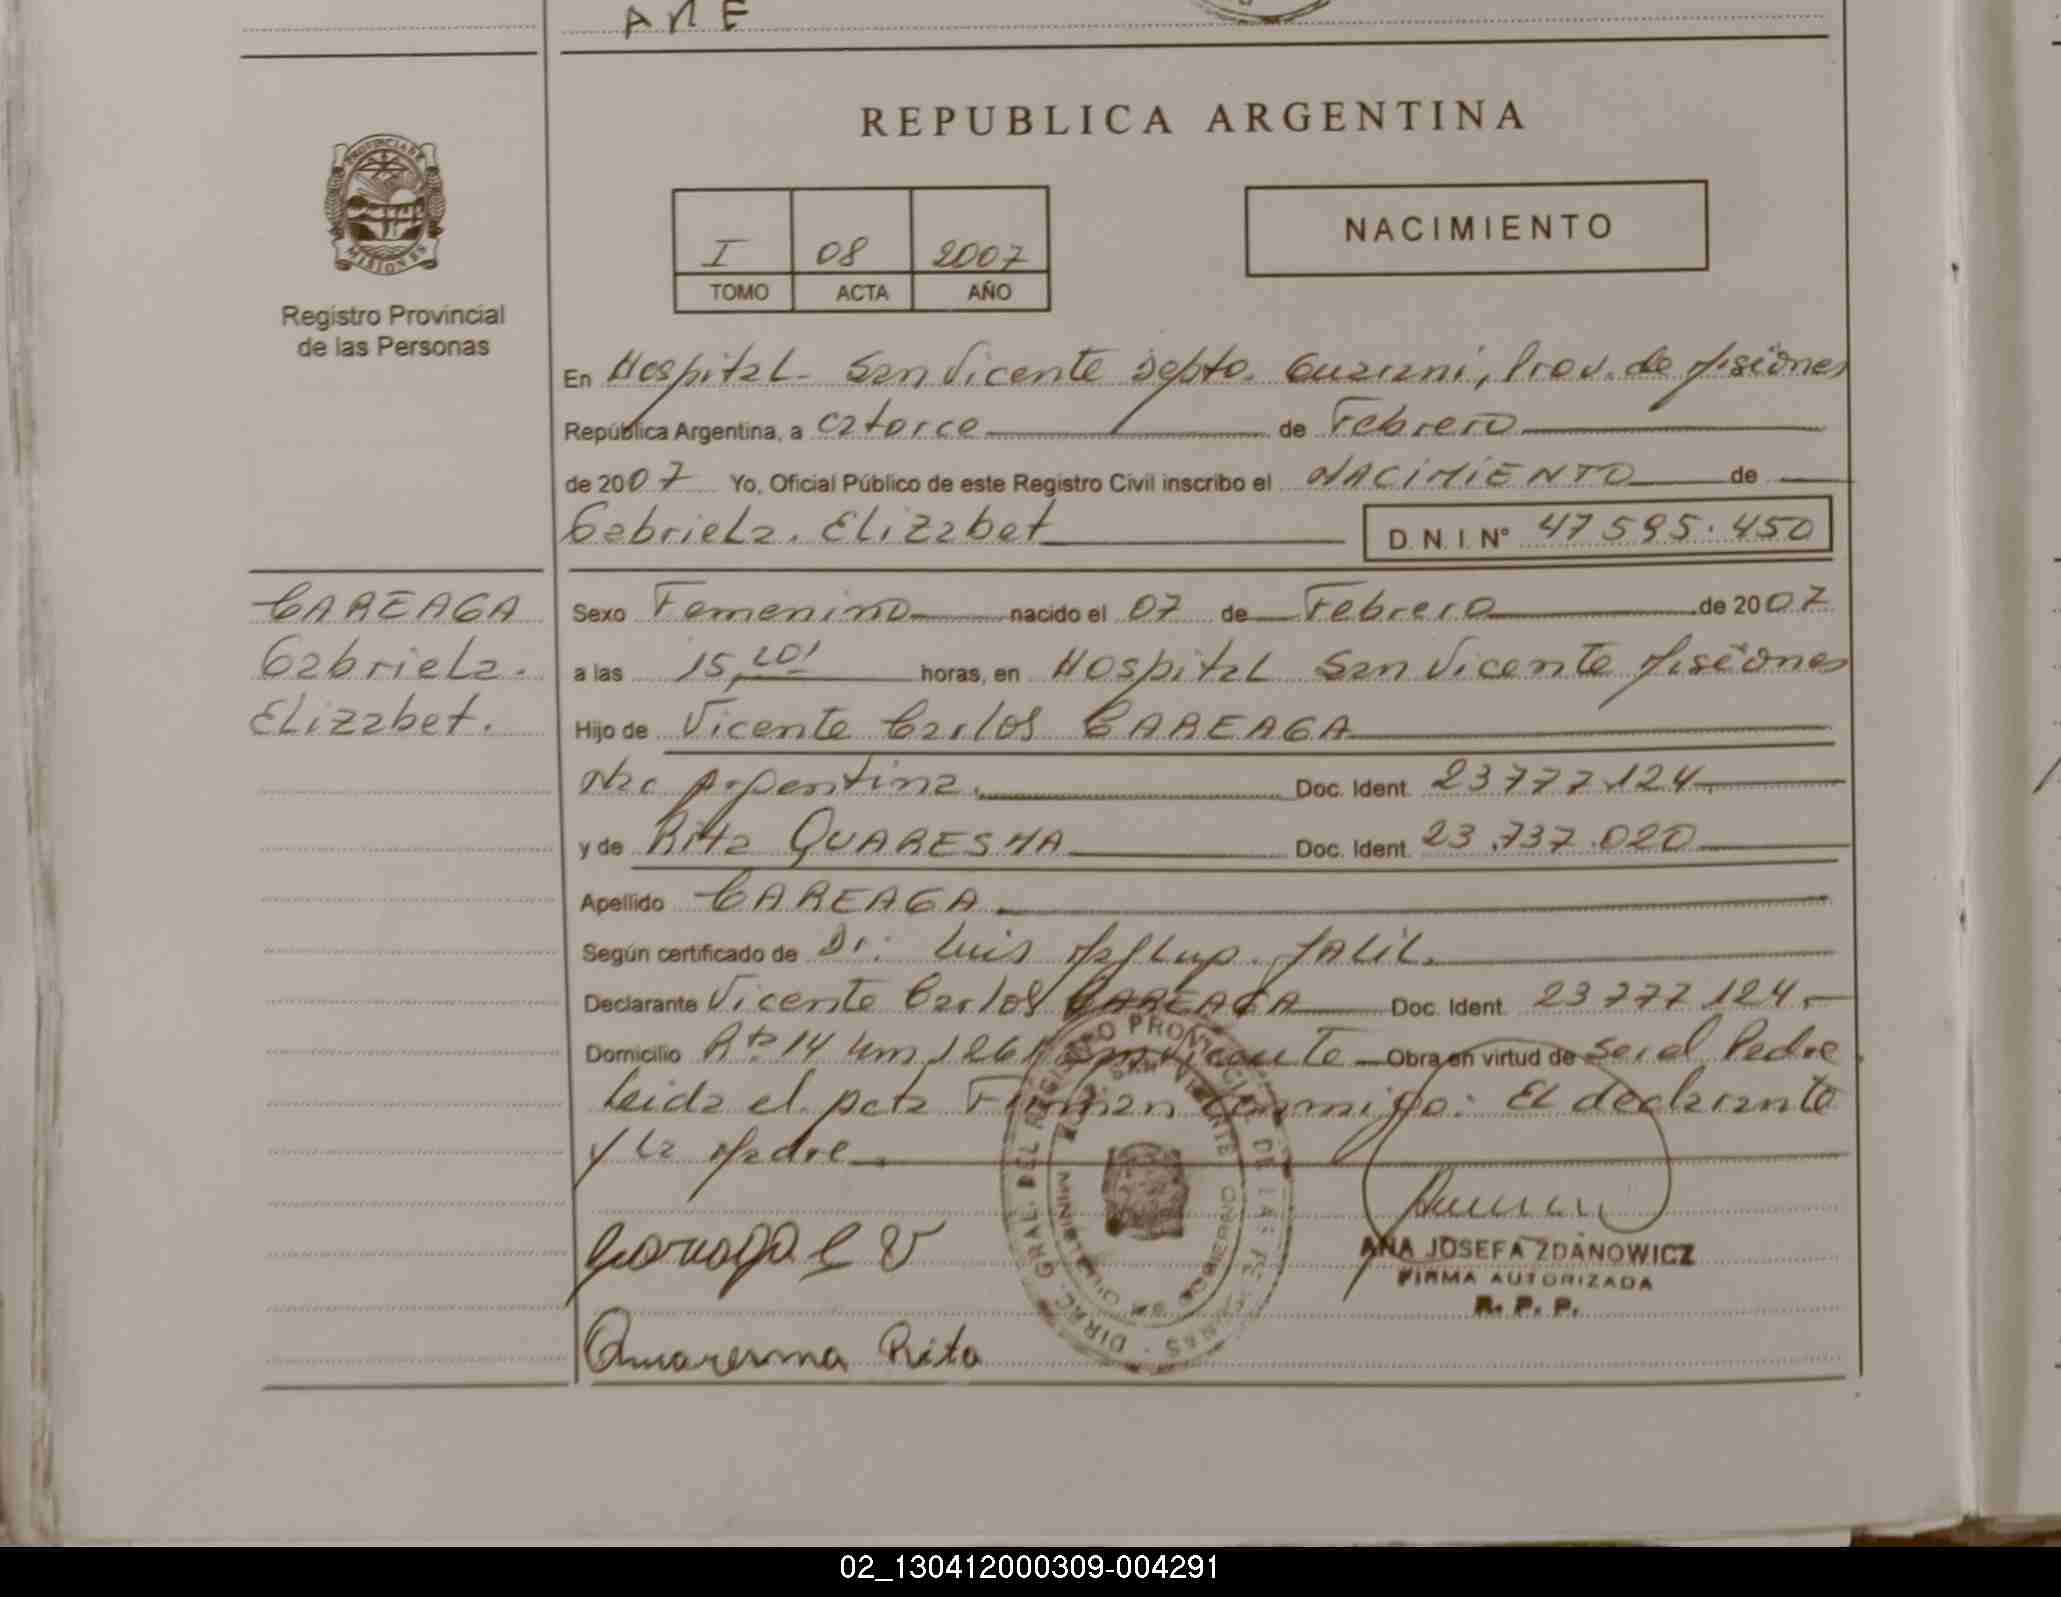 REPUBLICA ARGENTINA
PROVINCIA DE
MISIONES
Registro Provincial
de las Personas
I 08 2007
TOMO ACTA AÑO
NACIMIENTO
En Hospital San Vicente Depto. Guarani, Prov. de Misiones
República Argentina, a catorce de Febrero
de 2007 Yo, Oficial Público de este Registro Civil inscribo el NACIMIENTO de
Gabriela. Elizabet D. N. I. Nº 47 595.450
CAREAGA
Gabriela.
Elizabet.
Sexo Femenino nacido el 07 de Febrero de 2007
a las 15, horas, en Hospital San Vicente Misiones
Hijo de Vicente Carlos CAREAGA
Nac Argentina. Doc. Ident. 23 777.124
y de Rita QUARESMA Doc. Ident. 23.737.020
Apellido CAREAGA
Según certificado de Dr. Luis JALIL.
Declarante Vicente Carlos CAREAGA Doc. Ident. 23 777.124.
Domicilio Rta 14 Km 126 San Vicente Obra en virtud de Ser el Padre
Leida el Acta Firman Conmigo: El declarante
y la Madre
DIREC. GRAL. DEL REGISTRO PROVINCIAL DE LAS PERSONAS
SAN VICENTE
MINISTERIO DE GOBIERNO
ANA JOSEFA ZDANOWICZ
FIRMA AUTORIZADA
R. P. P.
Quaresma Rita
02_130412000309-004291